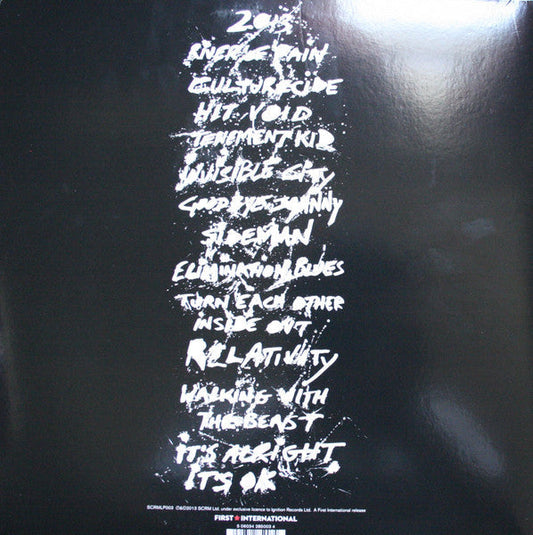 2013
RIVER OF PAIN
CULTURECIDE
HIT VOID
TENEMENT KID
INVISIBLE CITY
GOODBYE JOHNNY
SIDEMAN
ELIMINATION BLUES
TURN EACH OTHER
INSIDE OUT
RELATIVITY
WALKING WITH
THE BEAST
IT'S ALRIGHT
IT'S OK
SCRMLP003 ℗&©2013 SCRM Ltd. under exclusive licence to Ignition Records Ltd. A First International release
FIRST★INTERNATIONAL
5 06034 280003 4